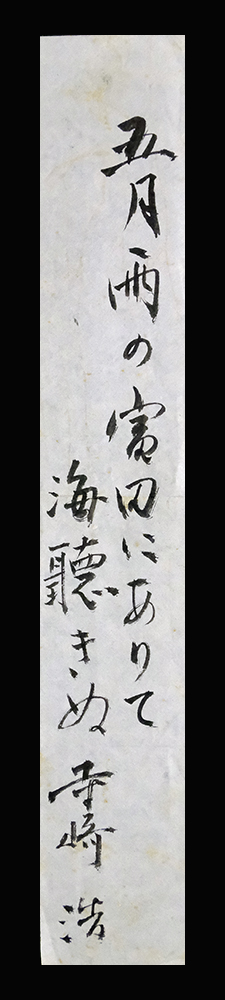 五月雨の富田にありて
海聴きぬ
寺崎浩